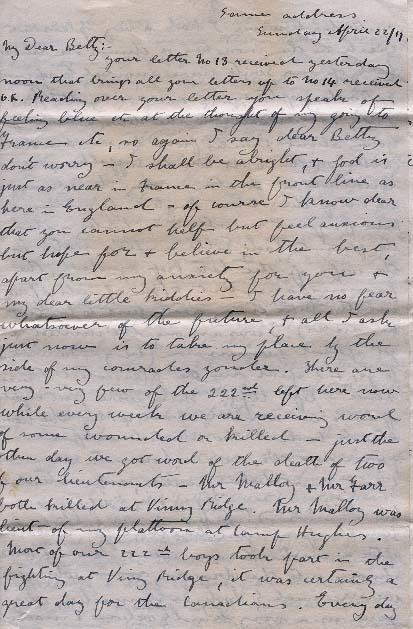 Same address
Sunday April 22/17.
My Dear Betty:-
your letter No 13 received yesterday
noon that brings all your letters up to No 14 received
O.K. Reading over your letter you speak of
feeling blue etc at the thought of my going to
France etc, so again I say dear Betty
don't worry - I shall be alright, & God is
just as near in France in the front line as
here in England - of course I know dear
that you cannot help but feel anxious
but hope for & believe in the best,
apart from my anxiety for you &
my dear little kiddies - I have no fear
whatsoever of the future, & all I ask
just now is to take my place by the
side of my comrades yonder. There are
very - very few of the 222nd left here now
while every week we are receiving word
of some wounded or killed - just the
other day we got word of the death of two
of our lieutenants - Mr Malloy & Mr Farr
both killed at Vimy Ridge. Mr Malloy was
lieut of my platoon at Camp Hughes.
Most of our 222nd boys took part in the
fighting at Vimy Ridge, it was certainly a
great day for the Canadians. Every day